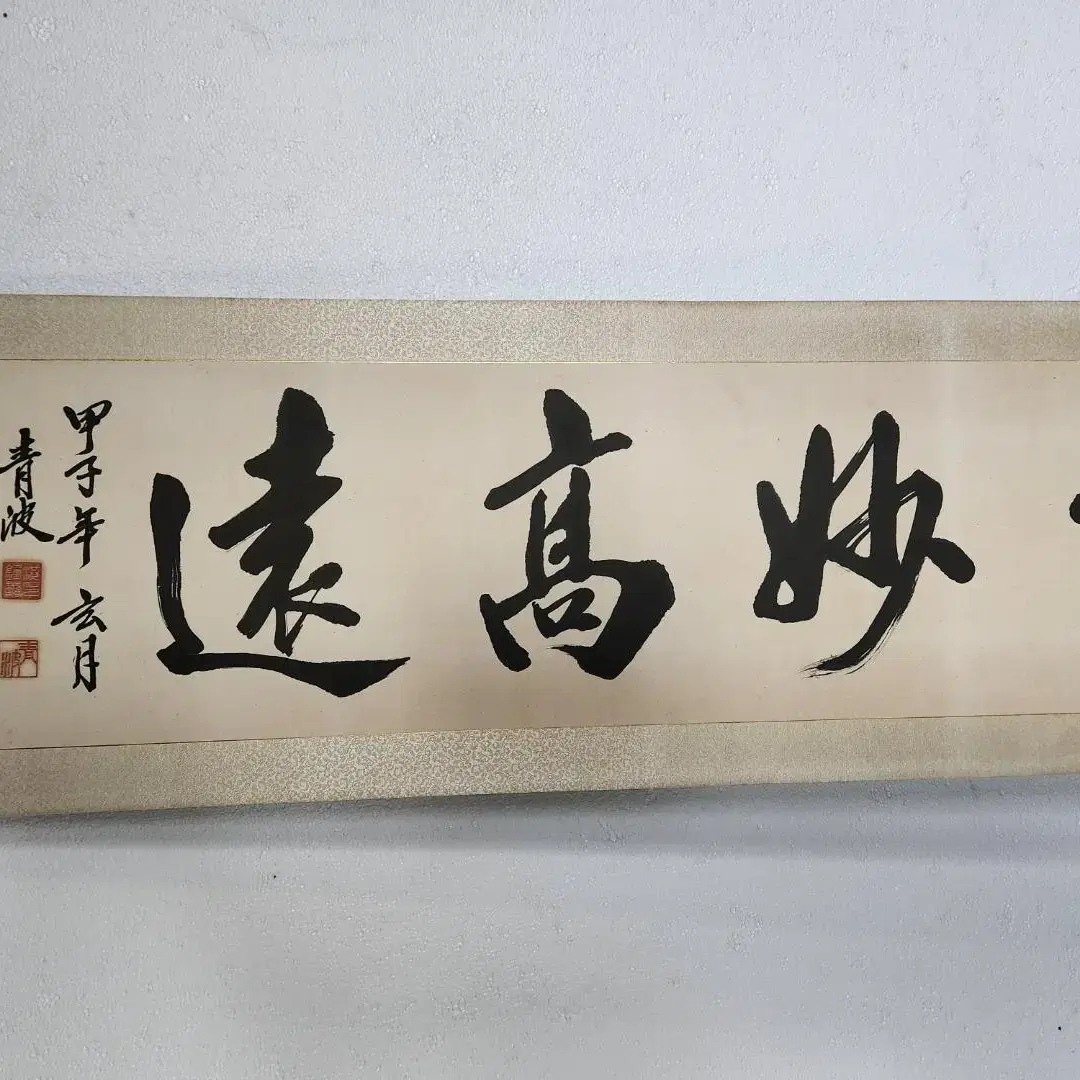 妙高遠
甲子年 玄月
青波
青波